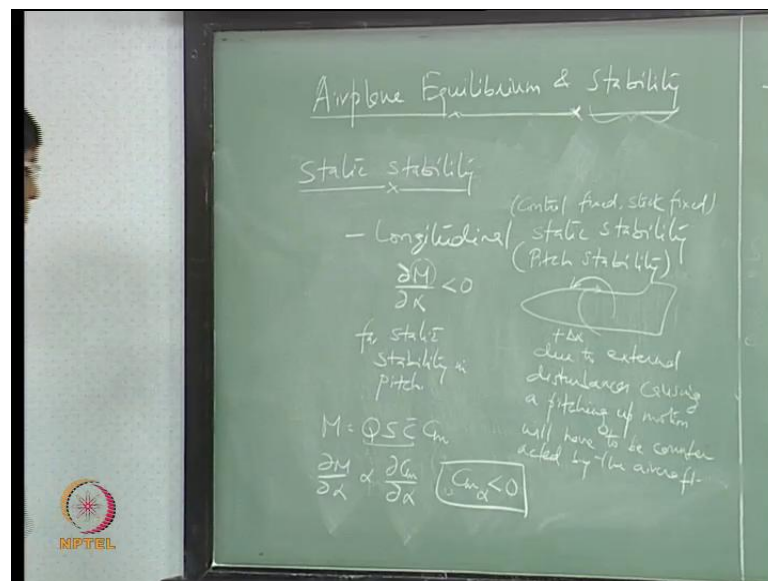 Airplane Equilibrium & Stability
Static Stability
(Control fixed, stick fixed)
- Longitudinal static stability
(Pitch Stability)
∂M/∂α < 0
for static
stability in
pitch
+Δα
due to external
disturbances causing
a pitching up motion
will have to be counter
acted by the aircraft.
M = Q S c̄ Cm
∂M/∂α ∝ ∂Cm/∂α
Cmα < 0
NPTEL